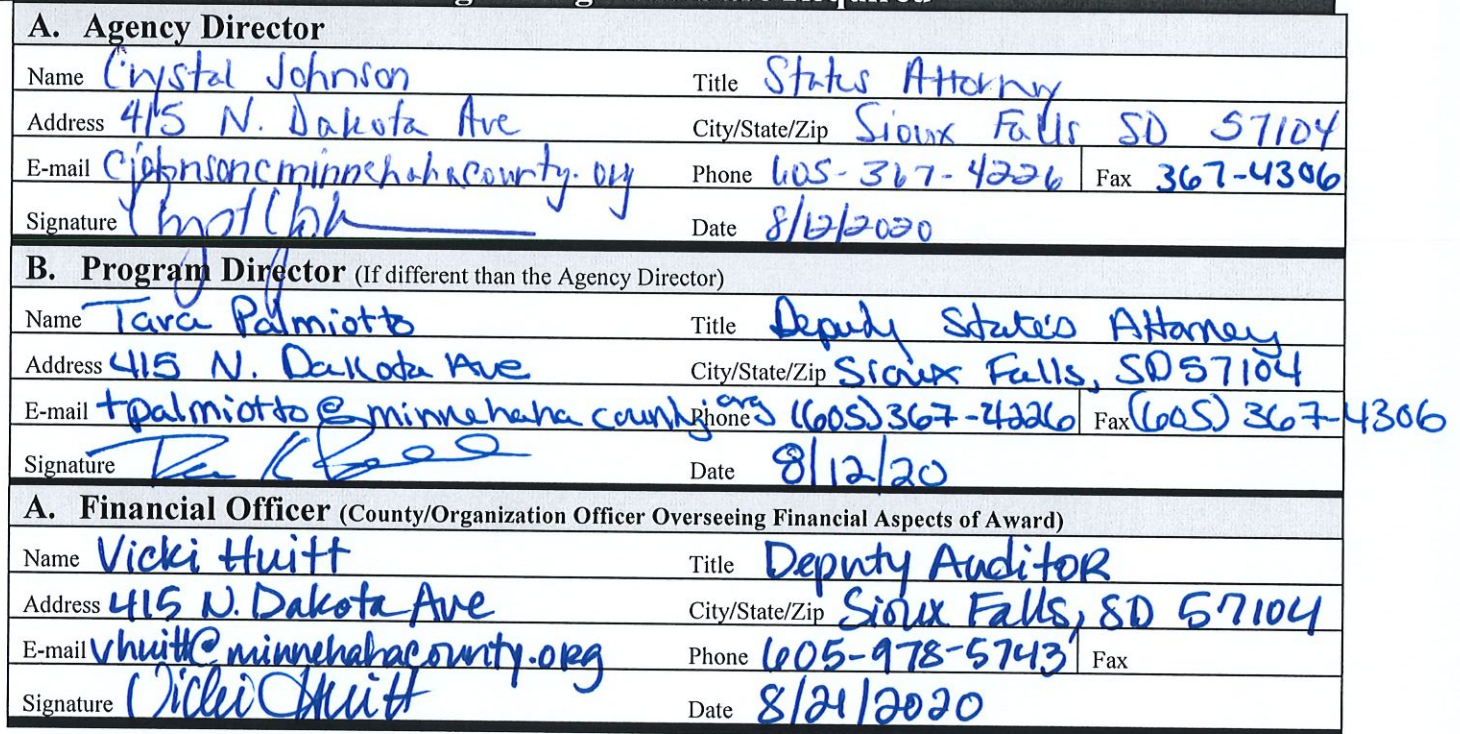 Required
A. Agency Director
Name Crystal Johnson Title States Attorney
Address 415 N. Dakota Ave City/State/Zip Sioux Falls SD 57104
E-mail cjohnsoncminnehahacounty.org Phone 605-367-4226 Fax 367-4306
Signature Date 8/12/2020
B. Program Director (If different than the Agency Director)
Name Tara Palmiotto Title Deputy State's Attorney
Address 415 N. Dakota Ave City/State/Zip Sioux Falls, SD 57104
E-mail tpalmiotto@minnehahacounty.org Phone (605) 367-4226 Fax (605) 367-4306
Signature Date 8/12/20
A. Financial Officer (County/Organization Officer Overseeing Financial Aspects of Award)
Name Vicki Huitt Title Deputy Auditor
Address 415 N. Dakota Ave City/State/Zip Sioux Falls, SD 57104
E-mail vhuitt@minnehahacounty.org Phone 605-978-5743 Fax
Signature Vicki Huitt Date 8/21/2020